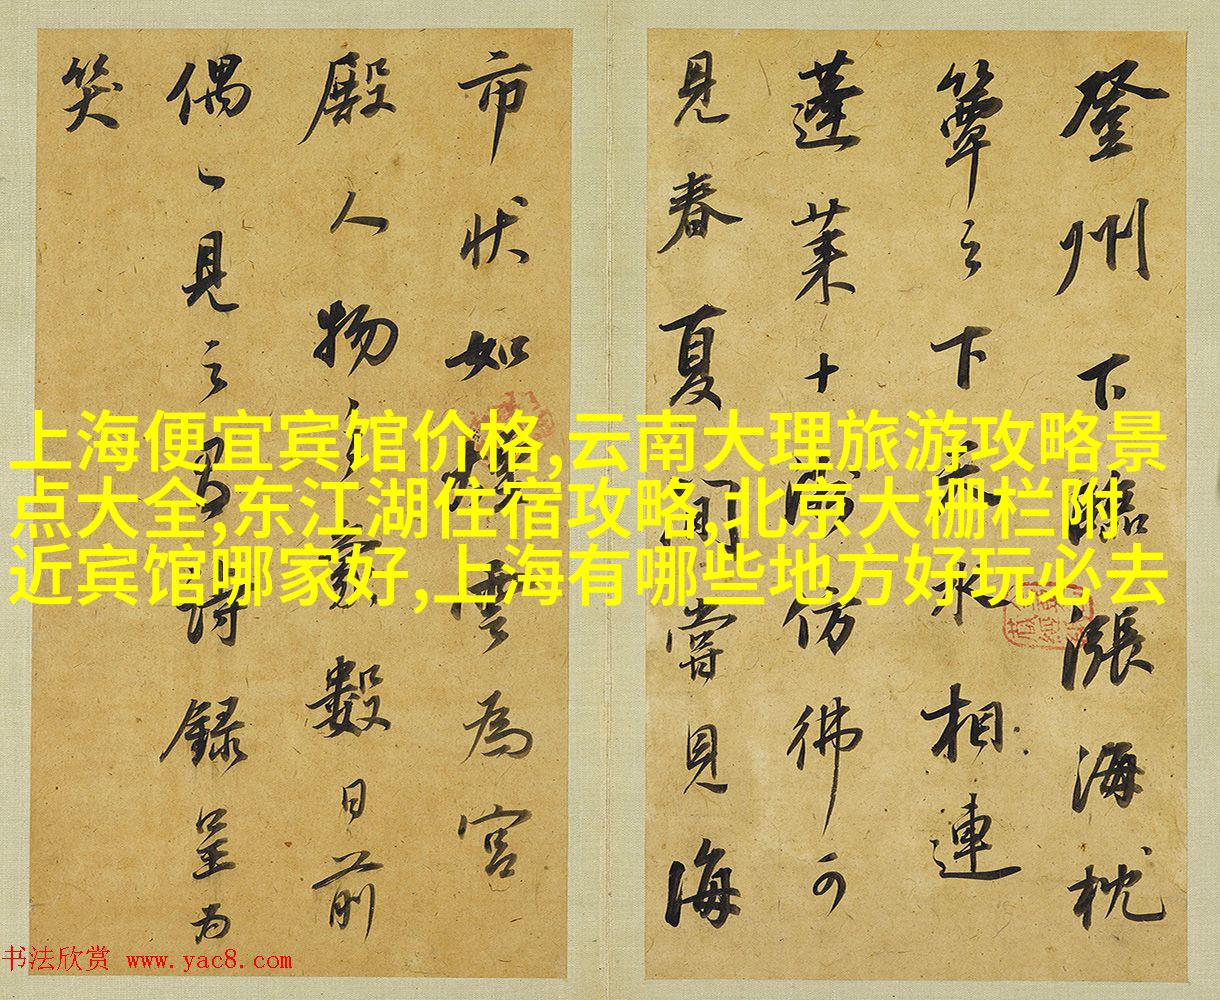 登州下臨漲海枕
簟之下天水相連
蓬莱十仿彿可
見春夏間嘗見海
市状如樓雲為宮
殿人物之象數日前
偶一見之詩録呈为
笑
上海便宜宾馆价格,云南大理旅游攻略景
点大全,东江湖住宿攻略,北京大栅栏附
近宾馆哪家好,上海有哪些地方好玩必去
书法欣赏 www.yac8.com